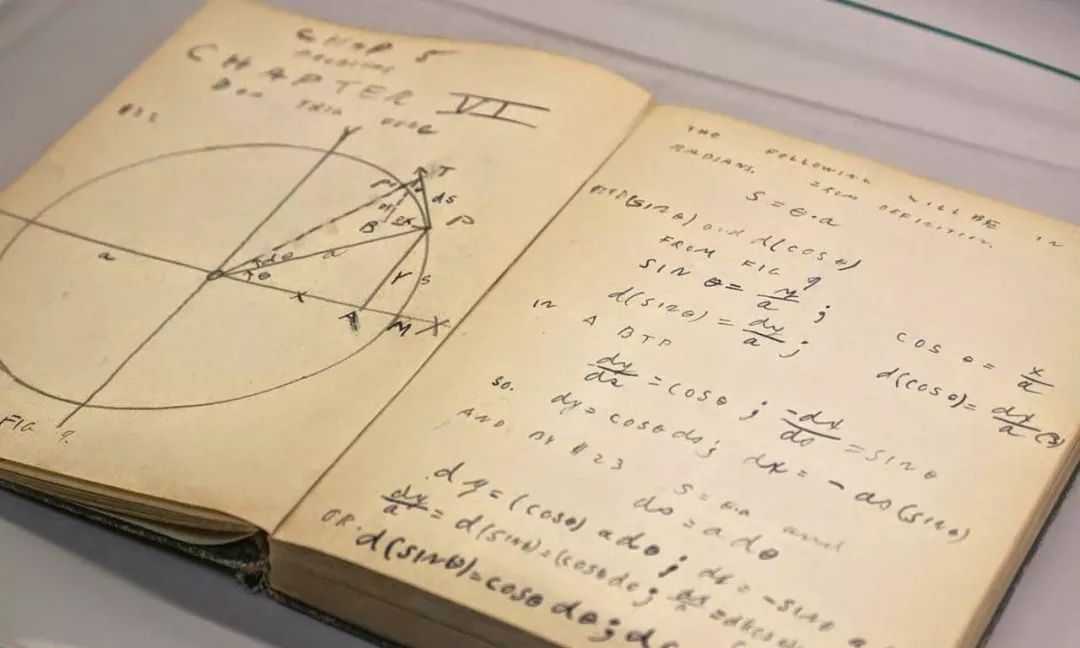 CHAP 5
CHAPTER VI
Y
T
ds
P
B
dθ
θ
a
a
Y
S
X
A
M
X
FIG 9.
THE FOLLOWING WILL BE IN
RADIANS. FROM DEFINITION,
S = θ·a
FIND d(SIN θ) and d(COS θ)
FROM FIG 9
SIN θ = y/a ; COS θ = x/a
d(SIN θ) = dy/a ; d(COS θ) = dx/a
IN A BTP
dy/ds = COS θ ; -dx/ds = SIN θ
SO. dy = COS θ ds ; dx = - ds (SIN θ)
AND BY #23 S = θ·a and
ds = a dθ
dy = (COS θ) a dθ ; dx = - SIN θ a
dy/a = d(SIN θ) = (COS θ dθ ;
OR. d(SIN θ) = COS θ dθ ;